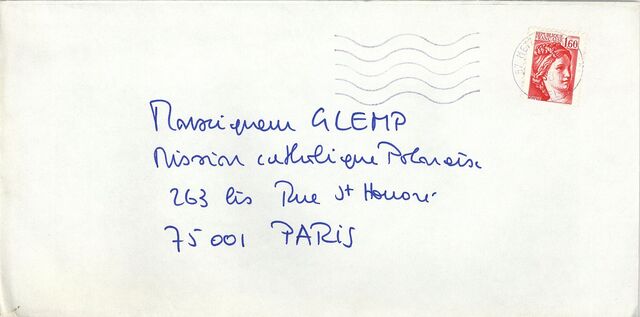 REPUBLIQUE FRANCAISE
1,60
Monseigneur GLEMP
Mission catholique Polonaise
263 bis Rue St Honoré
75001 PARIS